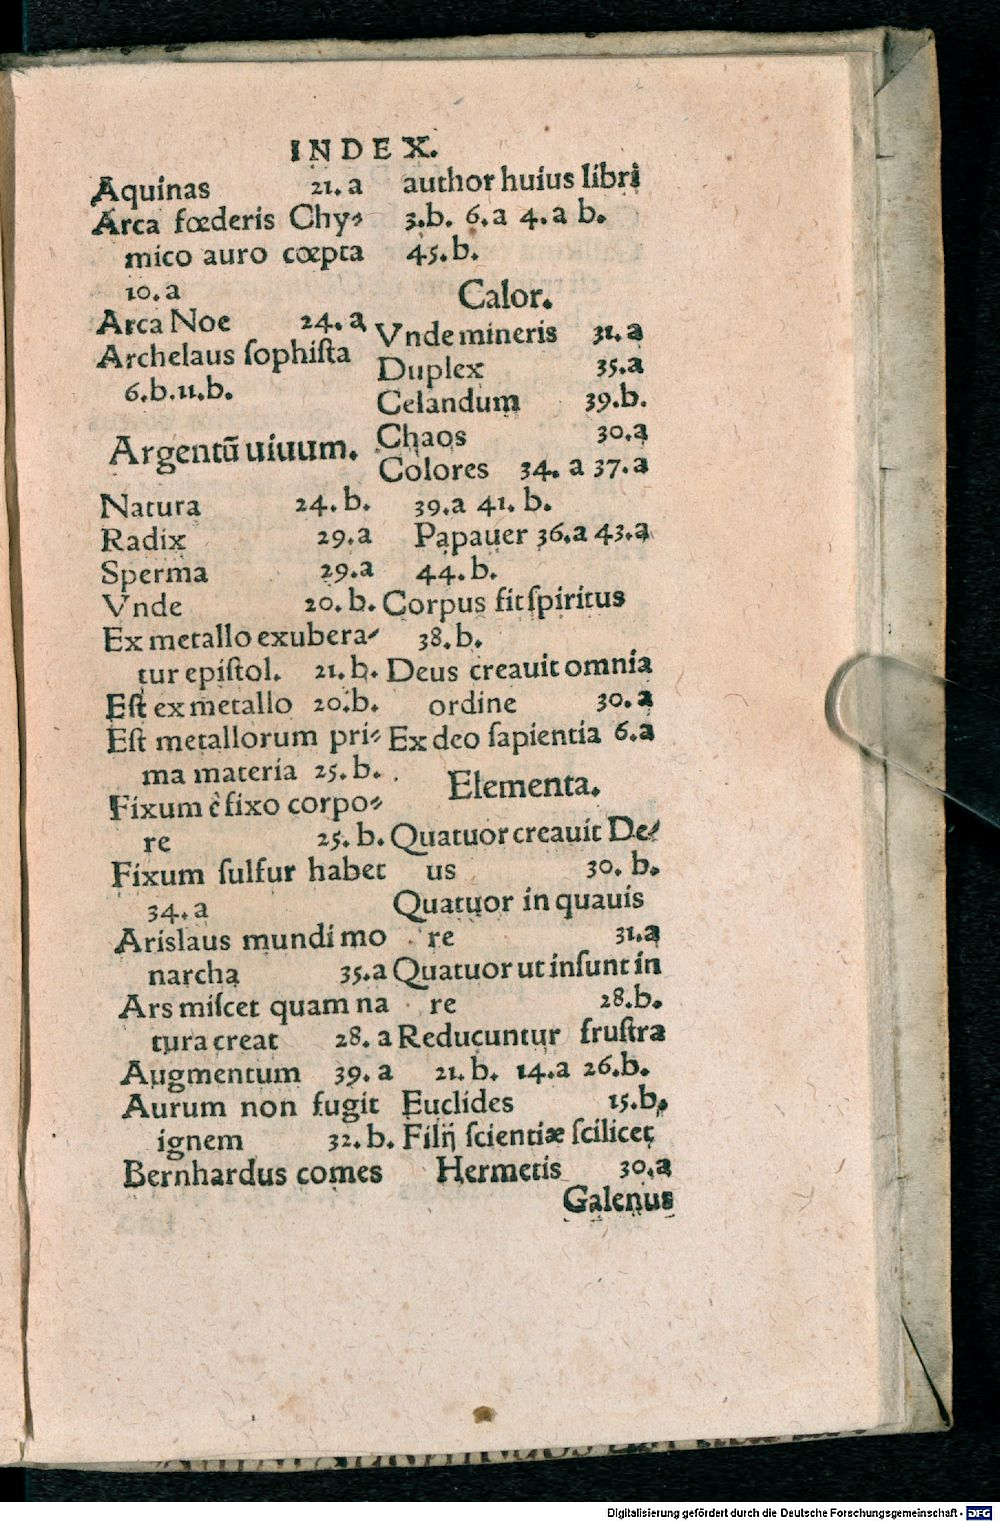 INDEX.
Aquinas 21. a
Arca fœderis Chy⸗
mico auro cœpta
10. a
Arca Noe 24. a
Archelaus ſophiſta
6.b.11.b.
Argentũ uiuum.
Natura 24. b.
Radix 29.a
Sperma 29.a
Vnde 20. b.
Ex metallo exubera⸗
tur epiſtol. 21. b.
Eſt ex metallo 20.b.
Eſt metallorum pri⸗
ma materia 25. b.
Fixum è fixo corpo⸗
re 25. b.
Fixum ſulfur habet
34.a
Arislaus mundi mo
narcha 35.a
Ars miſcet quam na
tura creat 28. a
Augmentum 39. a
Aurum non fugit
ignem 32. b.
Bernhardus comes
author huius libri
3.b. 6.a 4.a b.
45.b.
Calor.
Vnde mineris 31.a
Duplex 35.a
Celandum 39.b.
Chaos 30.a
Colores 34. a 37.a
39.a 41. b.
Papauer 36.a 43.a
44.b.
Corpus fit ſpiritus
38.b.
Deus creauit omnia
ordine 30.a
Ex deo ſapientia 6.a
Elementa.
Quatuor creauit De⸗
us 30. b.
Quatuor in quauis
re 31.a
Quatuor ut inſunt in
re 28.b.
Reducuntur fruſtra
21. b. 14.a 26.b.
Euclides 15.b.
Filij ſcientiæ ſcilicet
Hermetis 30.a
Galenus
Digitalisierung gefördert durch die Deutsche Forschungsgemeinschaft - DFG